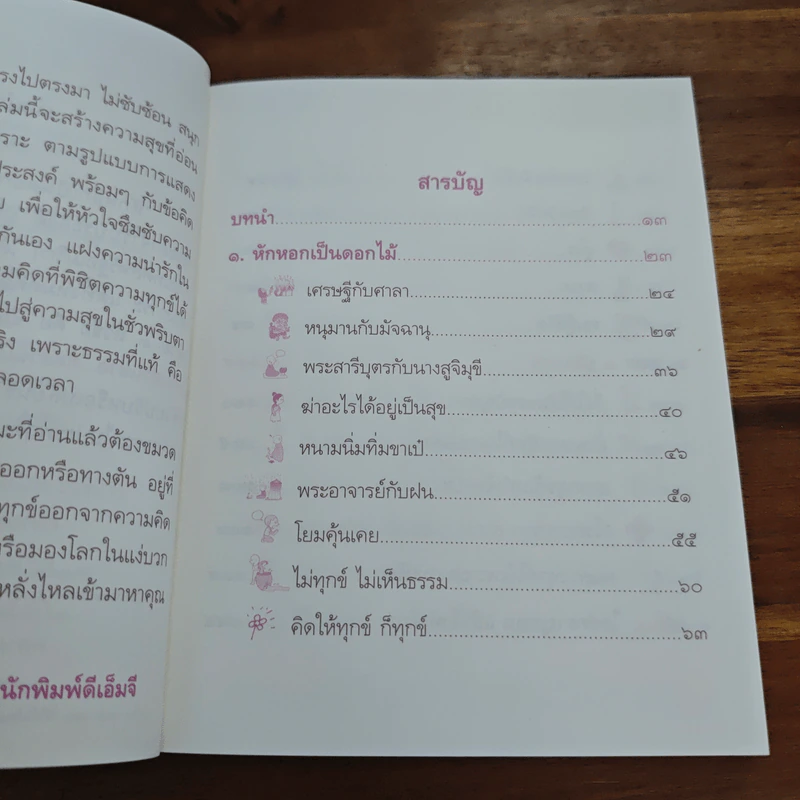 รงไปตรงมา ไม่ซับซ้อน สนุก
ล่มนี้จะสร้างความสุขที่อ่อน
ราะ ตามรูปแบบการแสดง
ประสงค์ พร้อมๆ กับข้อคิด
เพื่อให้หัวใจซึมซับความ
กันเอง แฝงความน่ารักใน
มคิดที่พิชิตความทุกข์ได้
ไปสู่ความสุขในชั่วพริบตา
ริง เพราะธรรมที่แท้ คือ
ลอดเวลา
มะที่อ่านแล้วต้องขมวด
ออกหรือทางตัน อยู่ที่
ทุกข์ออกจากความคิด
หรือมองโลกในแง่บวก
หลั่งไหลเข้ามาหาคุณ
นักพิมพ์ดีเอ็มจี
สารบัญ
บทนำ....................๑๓
๑. หักหอกเป็นดอกไม้....................๒๓
เศรษฐีกับศาลา....................๒๔
หนุมานกับมัจฉานุ....................๒๙
พระสารีบุตรกับนางสูจิมุขี....................๓๖
ฆ่าอะไรได้อยู่เป็นสุข....................๔๐
หนามนิ่มทิ่มขาเป๋....................๔๖
พระอาจารย์กับฝน....................๕๑
โยมคุ้นเคย....................๕๕
ไม่ทุกข์ ไม่เห็นธรรม....................๖๐
คิดให้ทุกข์ ก็ทุกข์....................๖๓